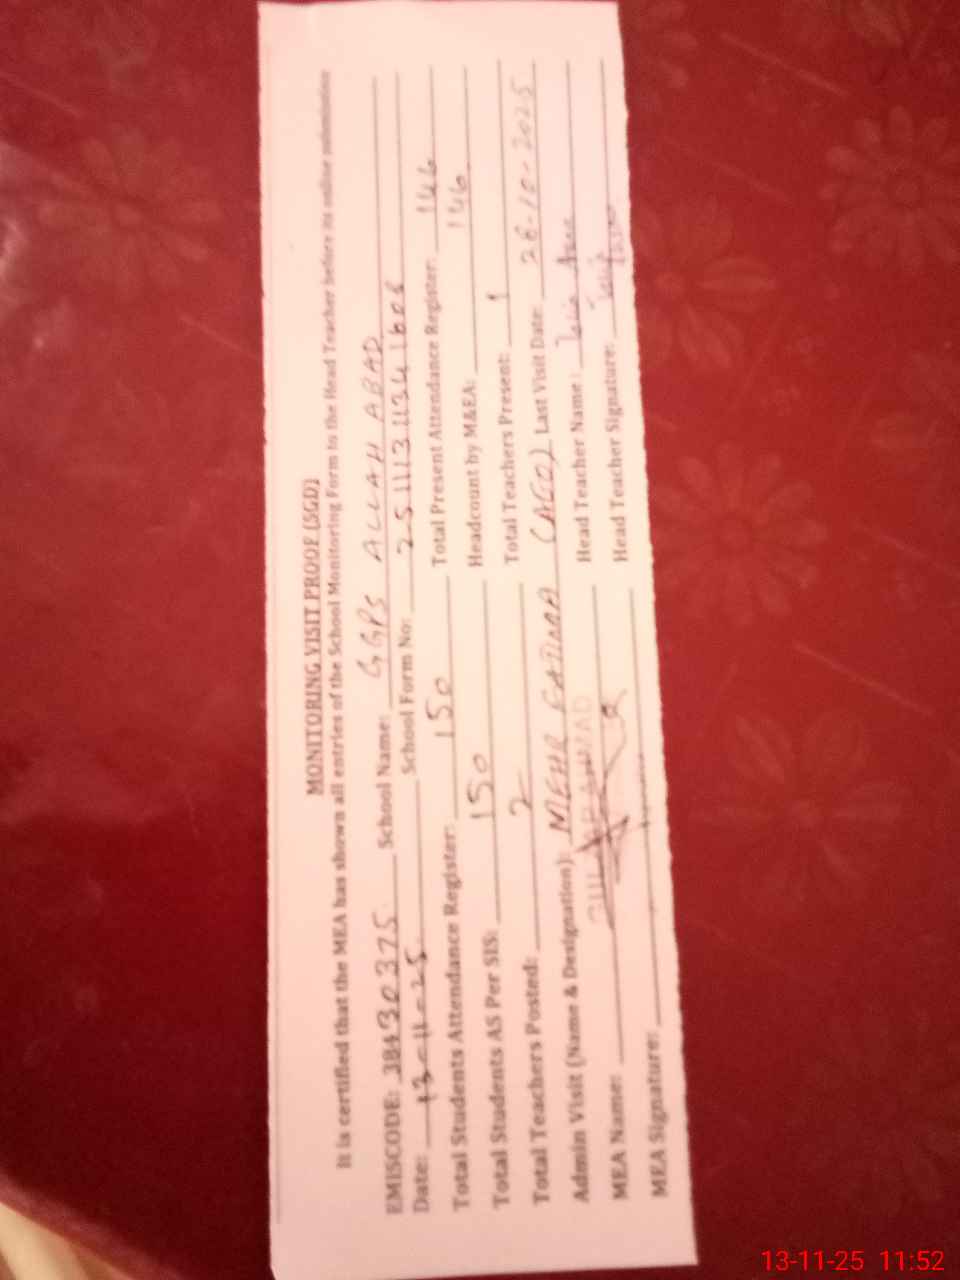 MONITORING VISIT PROOF (SGD)
It is certified that the MEA has shown all entries of the School Monitoring Form to the Head Teacher before its online submission
EMISCODE: 38430375 School Name: GGPS ALLAH ABAD
Date: 13-11-25 School Form No: 2511131341606
Total Students Attendance Register: 150 Total Present Attendance Register: 146
Total Students AS Per SIS: 150 Headcount by M&EA: 146
Total Teachers Posted: 2 Total Teachers Present: 1
Admin Visit (Name & Designation): MEHR FATIMA (AEO) Last Visit Date: 28-10-2025
MEA Name: Head Teacher Name:
MEA Signature: Head Teacher Signature:
13-11-25 11:52